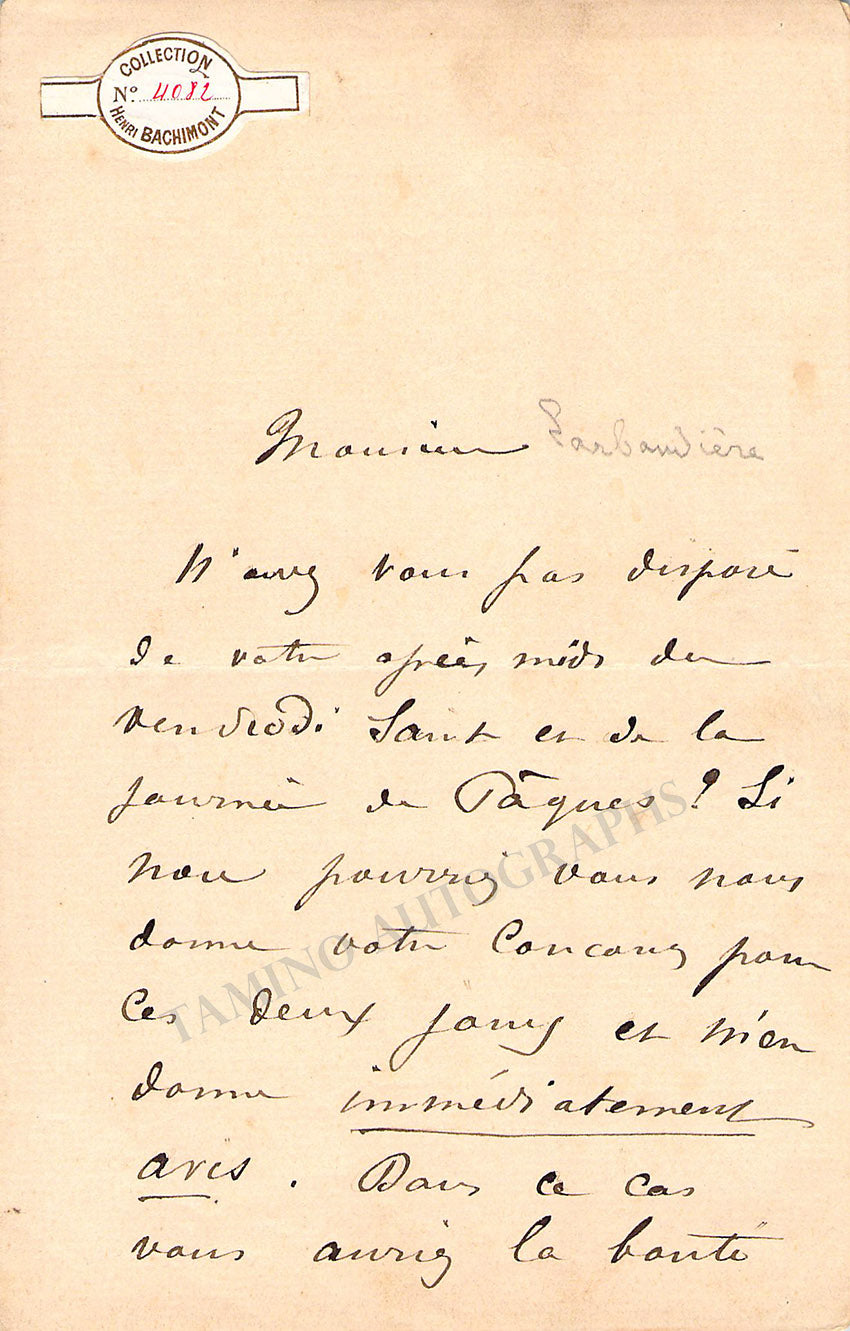 COLLECTION
No. 4082
HENRI BACHIMONT
Monsieur Larbaudière
N'avez vous pas disposé
de votre après midi du
vendredi Saint et de la
journée de Pâques ? Si
non pourriez vous nous
donner votre concours pour
ces deux jours et m'en
donner immédiatement
avis . Dans ce cas
vous auriez la bonté
TAMINO AUTOGRAPHS